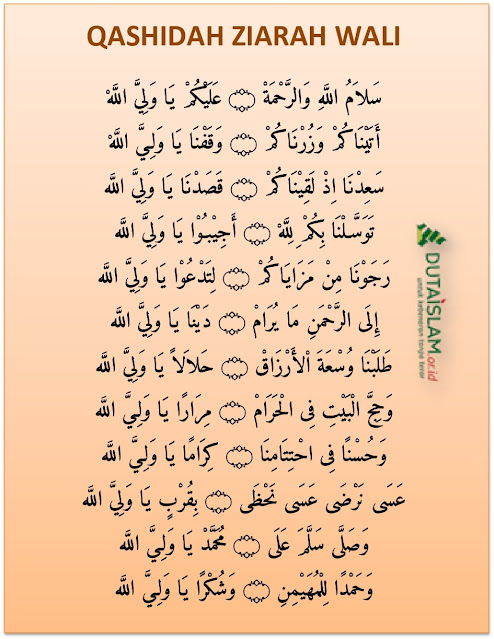 QASHIDAH ZIARAH WALI
سَلاَمُ اللَّهِ وَالرَّحْمَةْ ۞ عَلَيْكُمْ يَا وَلِيَّ اللَّهْ
أَتَيْنَاكُمْ وَزُرْنَاكُمْ ۞ وَقَفْنَا يَا وَلِيَّ اللَّهْ
سَعِدْنَا اِذْ لَقِيْنَاكُمْ ۞ قَصَدْنَا يَا وَلِيَّ اللَّهْ
تَوَسَّلْنَا بِكُمْ لِلَّهْ ۞ أَجِيْبُوْا يَا وَلِيَّ اللَّه
رَجَوْنَا مِنْ مَزَايَاكُمْ ۞ لِتَدْعُوْا يَا وَلِيَّ اللَّه
إِلَى الرَّحْمَنِ مَا يُرَامْ ۞ دَيْنَا يَا وَلِيَّ اللَّه
طَلَبْنَا وُسْعَةَ الْأَرْزَاقْ ۞ حَلاَلاً يَا وَلِيَّ اللَّه
وَحِجَّ الْبَيْتِ فِى الْحَرَامْ ۞ مِرَارًا يَا وَلِيَّ اللَّه
وَحُسْنًا فِى احْتِتَامِنَا ۞ كِرَامًا يَا وَلِيَّ اللَّه
عَسَى نَرْضَى عَسَى نَحْظَى ۞ بِقُرْبٍ يَا وَلِيَّ اللَّه
وَصَلَّى سَلَّمَ عَلَى ۞ مُحَمَّدْ يَا وَلِيَّ اللَّه
وَحَمْدًا لِلْمُهَيْمِنِ ۞ وَشُكْرًا يَا وَلِيَّ اللَّه
DUTAISLAM.or.id
untuk kebenaran tanpa teror